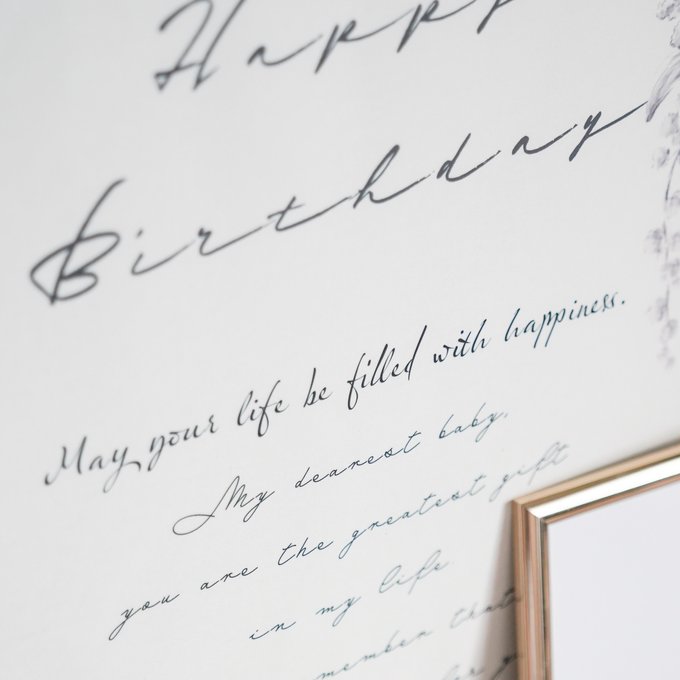 Happy
Birthday
May your life be filled with happiness.
My dearest baby,
you are the greatest gift
in my life
that